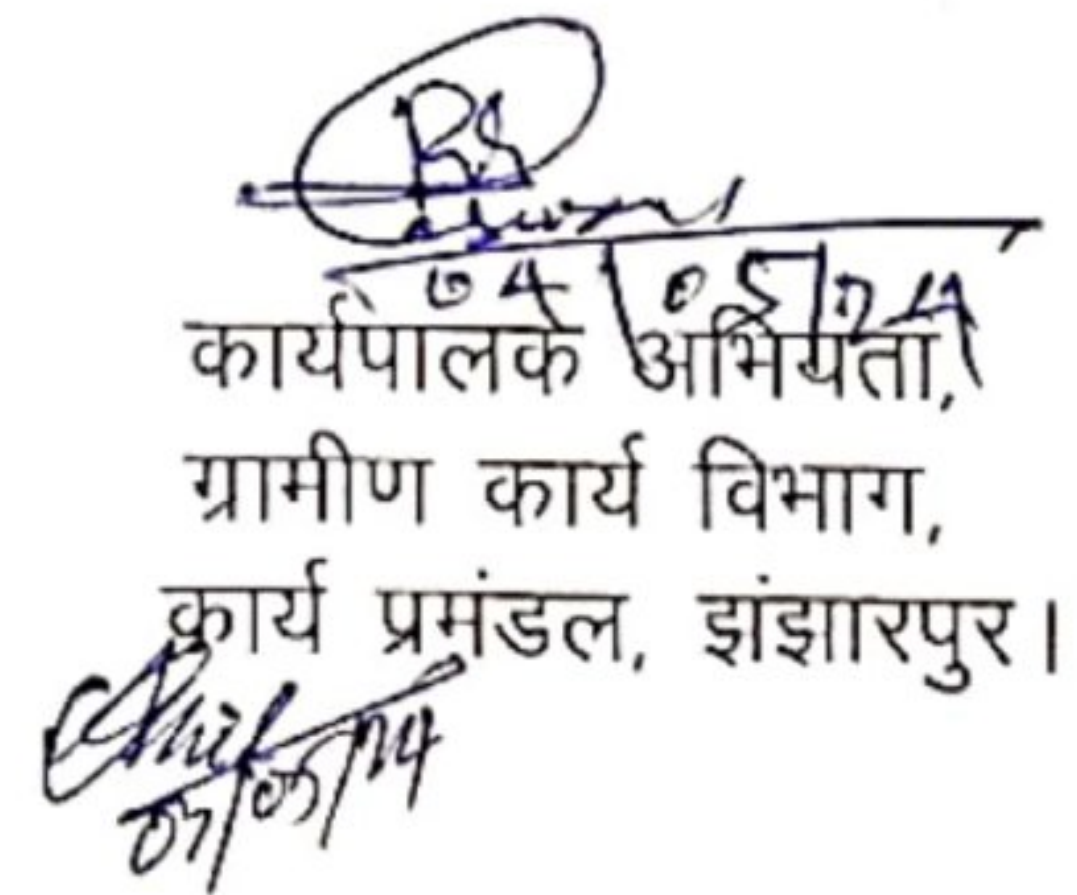 RS
04/05/24
कार्यपालक अभियंता,
ग्रामीण कार्य विभाग,
कार्य प्रमंडल, झंझारपुर।